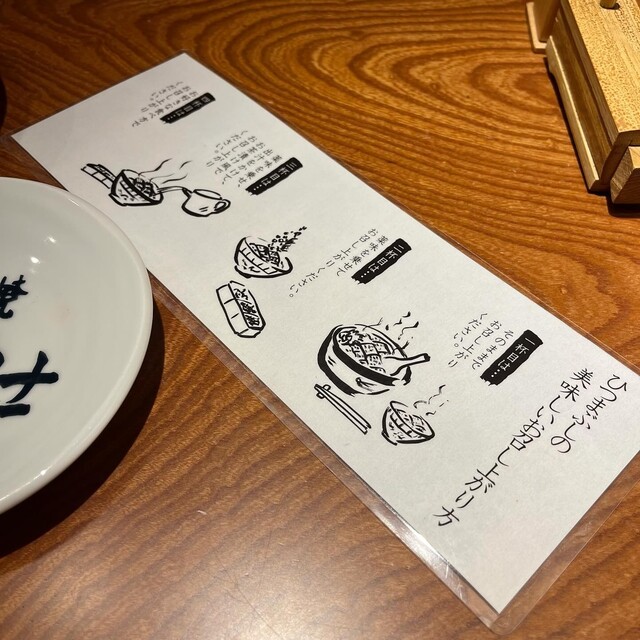 ひつまぶしの
美味しいお召し上がり方
一杯目は…
そのままで
お召し上がり
ください。
二杯目は…
薬味を乗せて
お召し上がり
ください。
三杯目は…
薬味を乗せ、
出汁をかけて、
お茶漬け風で
お召し上がり
ください。
四杯目は…
お好きな食べ方で
お召し上がり
ください。
焼